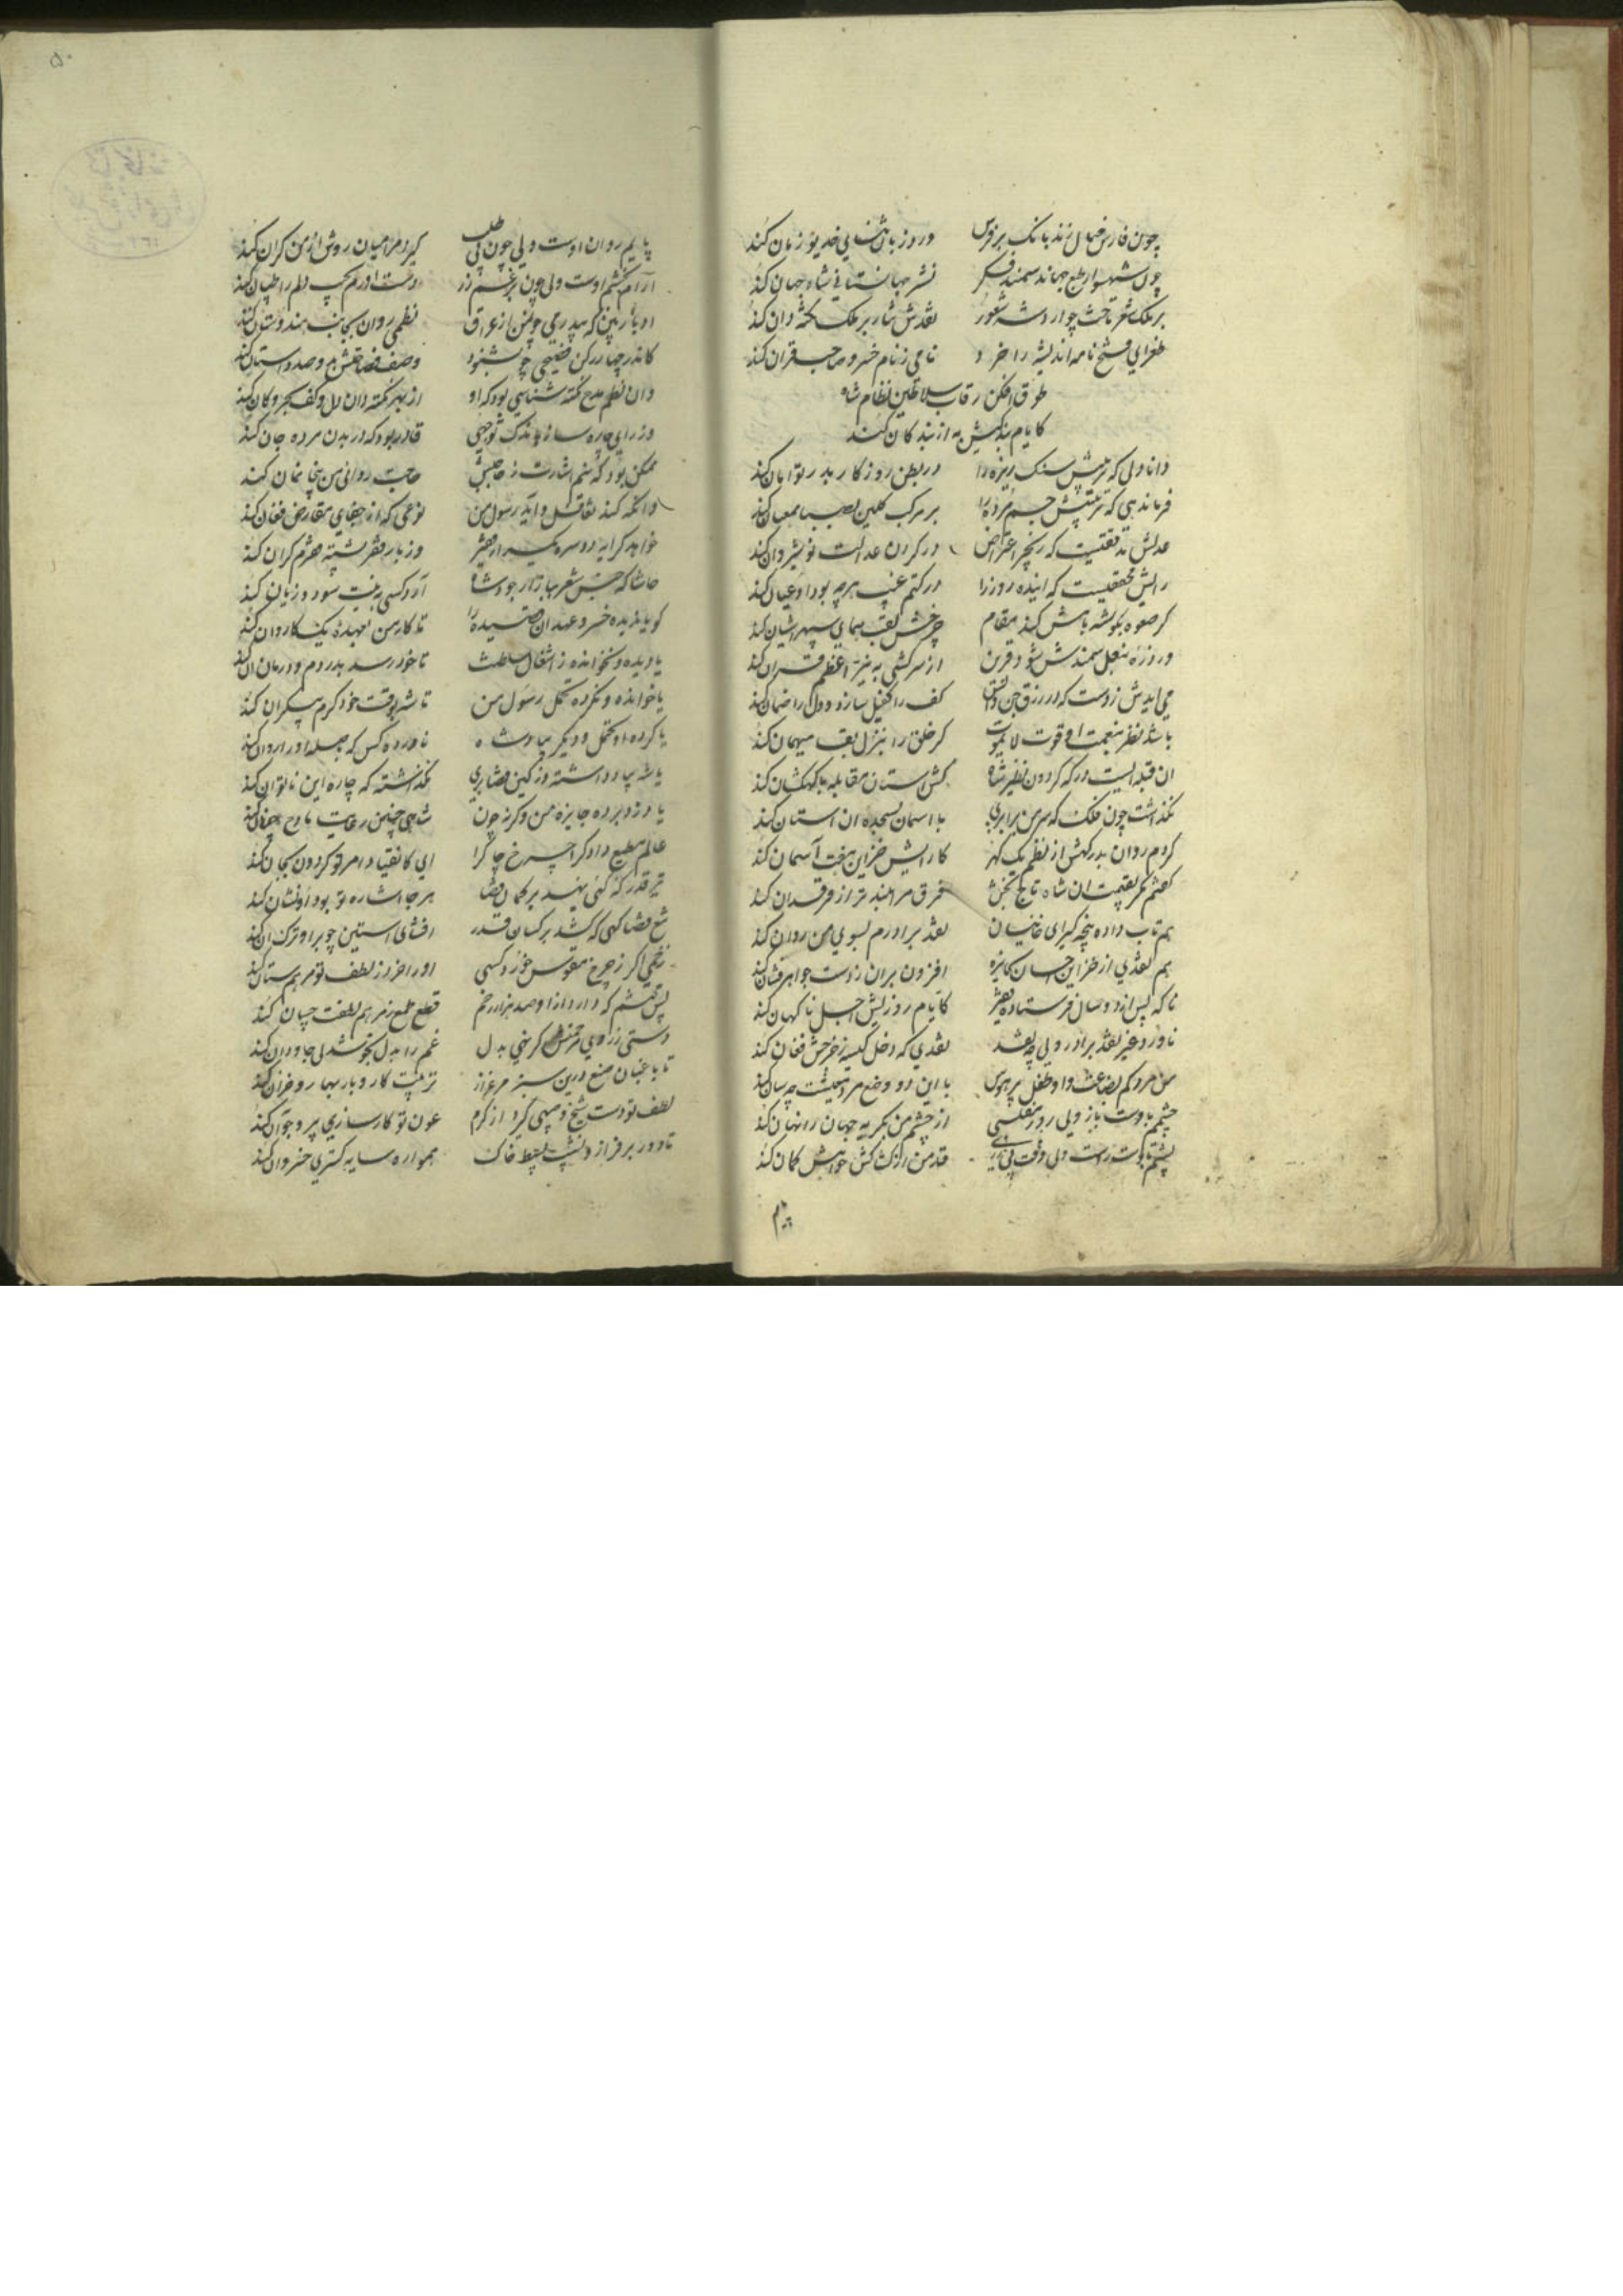 چون فارس خیال زند بانک بر فرس   ورد زبان ثنای خدیو زمان کند
چون شهسوار طبع جهاند سمند فکر   نشر جهانستانی شاه جهان کند
بر ملک شعر تاخت چو آرد شه شعور   نقدش نثار بر ملک نکته دان کند
طغرای فتح نامه اندیشه را خرد   نامی ز نام خسرو صاحبقران کند
طوق افکن رقاب سلاطین نظام شاه
کایام بندگیش به از بندگان کند
دانا دلی که تربیتش سنک ریزه را   در بطن روزگار بدر توامان کند
فرماندهی که تربیتش جسم مرده را   بر مرکب
عدلش مدققیست که زنجیر اعتراض   در گردن عدالت نوشیروان کند
رایش محققیست که آینده روز را   در کتم غیب هرچه بود او عیان کند
گر صعوه بگوشه بامش کند مقام   چرخش لقب همای سپهر آشیان کند
ور وزه بنعل سمندش شود قرین   از سرکشی به نیر اعظم قران کند
می آیدش ز دست که در رزق جن و انس   کف را کفیل سازد و دل را ضمان کند
باشد نظر بنعمت او قوت لایموت   گر خلق را بنزل بقا میهمان کند
آن قبله ایست درکه گردون نظیر شاه   کش آستان مقابله با کهکشان کند
نگذاشت چون فلک که سر من برابری   با آسمان بسجده آن آستان کند
کردم روان بدرگهش از نظم یک گهر   کارایش خزاین هفت آسمان کند
گفتم مگر بقیمت آن شاه تاج بخش   فرق مرا بلندتر از فرقدان کند
هم تاب داده پنجه گیرای   نقد برادرم بسوی من روان کند
هم نقدی از خزاین احسان بجایزه   افزون بران ز دست جواهر فشان کند
ناگه پس از دو سال فرستاده   کایام روزیش اجل ناگهان کند
ناورد غیر نقد برادر ولی چه نقد   نقدی که دخل کیسه ز خرجش فغان کند
من مرد کم بضاعت و او طفل پر هوس   با این دو وضع مرد معیشت چه سان کند
چشمم بدوست باز ولی روز مفلسی   از چشم من بگریه جهان را نهان کند
پشتم باوست راست ولی وقت   قد من از کشاکش خواهش کمان کند
پایم
پایم روان اوست ولی چون   گیرد مرا میان روش از من کران کند
آرام بخشم اوست ولی چون بر غم زر   دست آورم بجیب دلم را طپان کند
او بار بین که بیدرمی چون من از عراق   نظمی روان بجانب هندوستان کند
کاندر چهار رکن فصیحی چو بشنود   وصف فصاحتش بدو صد داستان کند
وان نظم مدح نکته شناسی بود که او   از بهر نکته دان دل و کف بحر و کان کند
وز رای چاره ساز باندک توجهی   قادر بود که در بدن مرده جان کند
ممکن بود که بنیم اشارت ز حاجبش   حاجت روائی من بیخانمان کند
وانگه کند تغافل و آید رسول من   نوعی که از جفای تقارض فغان کند
خواهد کرایه دو سره   وز بار قرض پشته قرضم گران کند
حاشا که جنس شعر ببازار جود شاه   آرد کسی به نیت سود و زیان کند
گویا ندیده خسرو عهد آن قصیده را   تا کار من بعهده یک کاردان کند
یا دیده و نخوانده ز اشغال سلطنت   تا خود رسد بدردم و درمان آن کند
یا خوانده و نکرده تحمل رسول من   تا شه بوقت خود کرم بیکران کند
یا کرده او تحمل و دیگر بپادشاه   ناورده کس که صله او را روان کند
یا شه بیاد داشته وز کین   نگذاشته که چاره این ناتوان کند
یا دزد برده جایزه من وگرنه چون   شاهی چنین رعایت مادح چنان کند
عالم مطیع دادگرا چرخ چاکرا   ای کانقیاد امر تو گردون بجان کند
تیر قدر که کی نهد بر کمان قضا   هر جا اشاره تو بود او نشان کند
تیغ قضا گهی که کشد بر کسان قدر   افشای آستین چو بر او ترک آن کند
زخمی اگر ز چرخ مقوس خورد کسی   او را خرد ز لطف تو مرهم ستان کند
پس خسته ام که دارد از او صد هزار زخم   قطع طمع ز مرهم لطفت چسان کند
دستی ز روی مرحمتش گر نهی بدل   غم را بدل بخوشدلی جاودان کند
تا باغبان صنع درین سبز مرغزار   تربیت کار و بار بهار و خزان کند
لطف تو دست شیخ و صبی گیرد از کرم   عون تو کارسازی پیر و جوان کند
تا دور بر فراز و نشیب بسیط خاک   همواره سایه گستری خسروان کند
۵۰